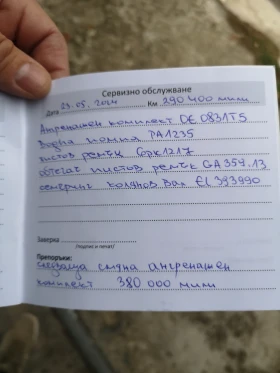 Сервизно обслужване
Дата 23.05.2024 Км 290 400 мили
Ангренажен комплект DE 0831TS
Водна помпа PA1235
пистов ремък 6pk1217
обтегач пистов ремък GA359.13
семеринг колянов вал EL393990
Заверка
/подпис и печат/
Препоръки:
следваща смяна ангренажен
комплект 380 000 мили